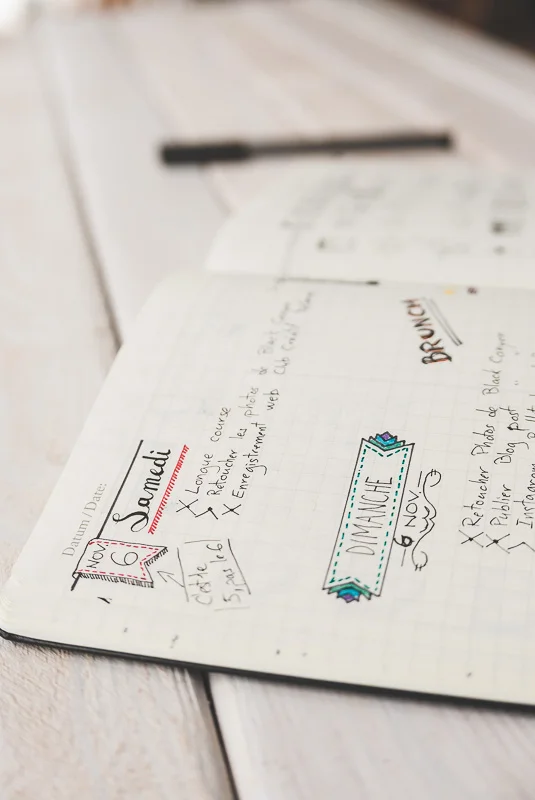 Datum/Date:
NOV.
6
Samedi
X Longue course
Retoucher les photos de Black
X Enregistrement web Club
5, pas le 6
DIMANCHE
6 NOV.
BRUNCH
X Retoucher Photos de Black Canyon
X Publier Blog post